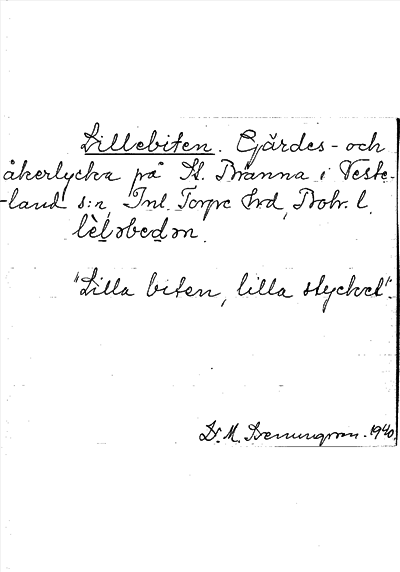 Lillebiten. Gärdes- och
åkerlycka på St. Bränna i Veste-
-land s:n, Inl. Torpe Hrd, Boh. l.
lèlǝbedǝn.
"Lilla biten, lilla stycket".
D. M. 1940.